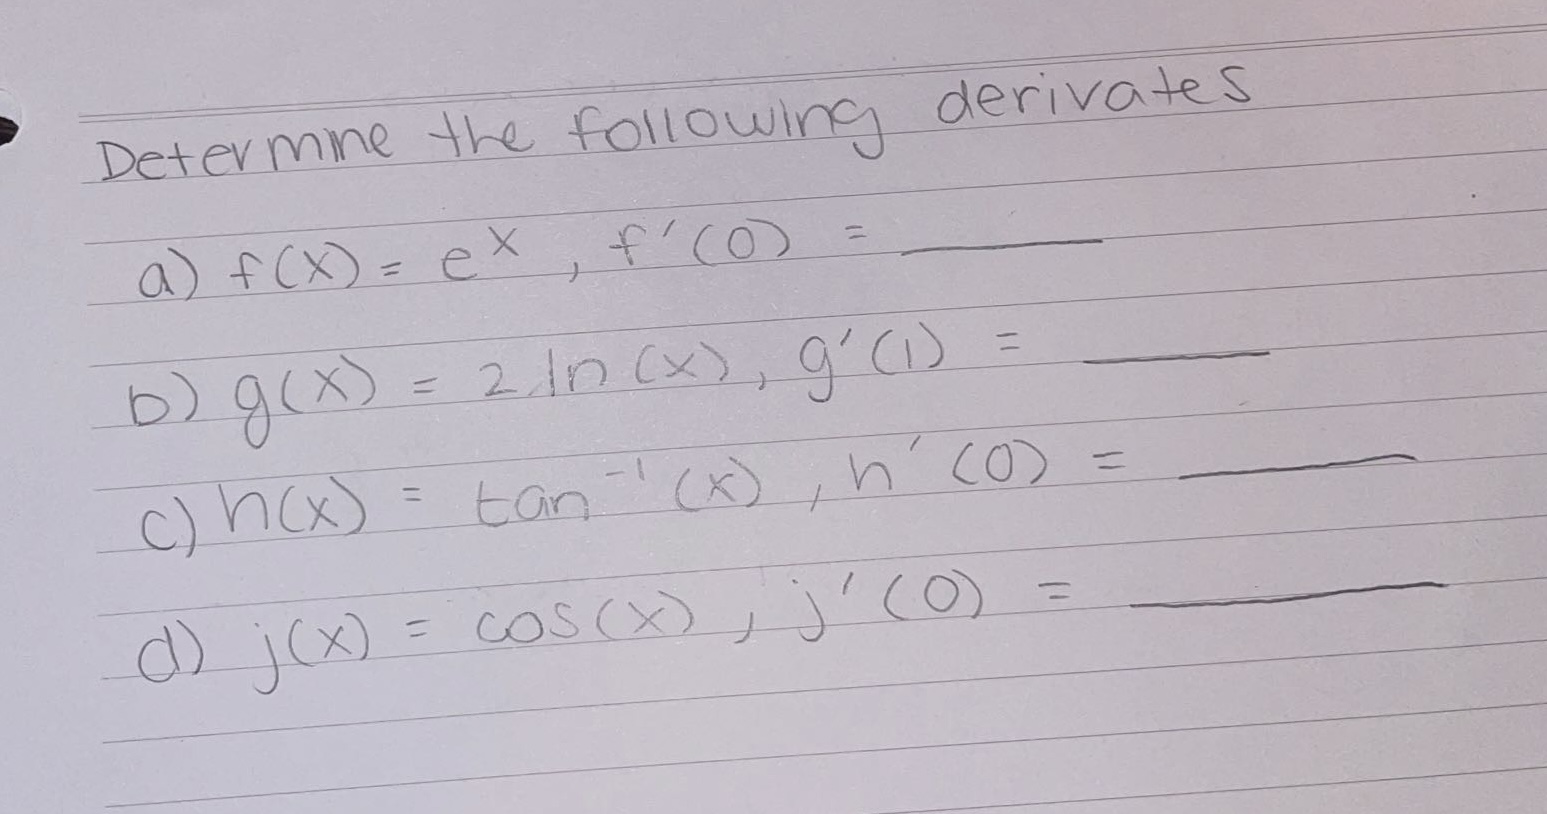 Determine the following derivates
a) f(x) = e^x, f'(0) = ______
b) g(x) = 2 ln(x), g'(1) = ______
c) h(x) = tan⁻¹(x), h'(0) = ______
d) j(x) = cos(x), j'(0) = ______